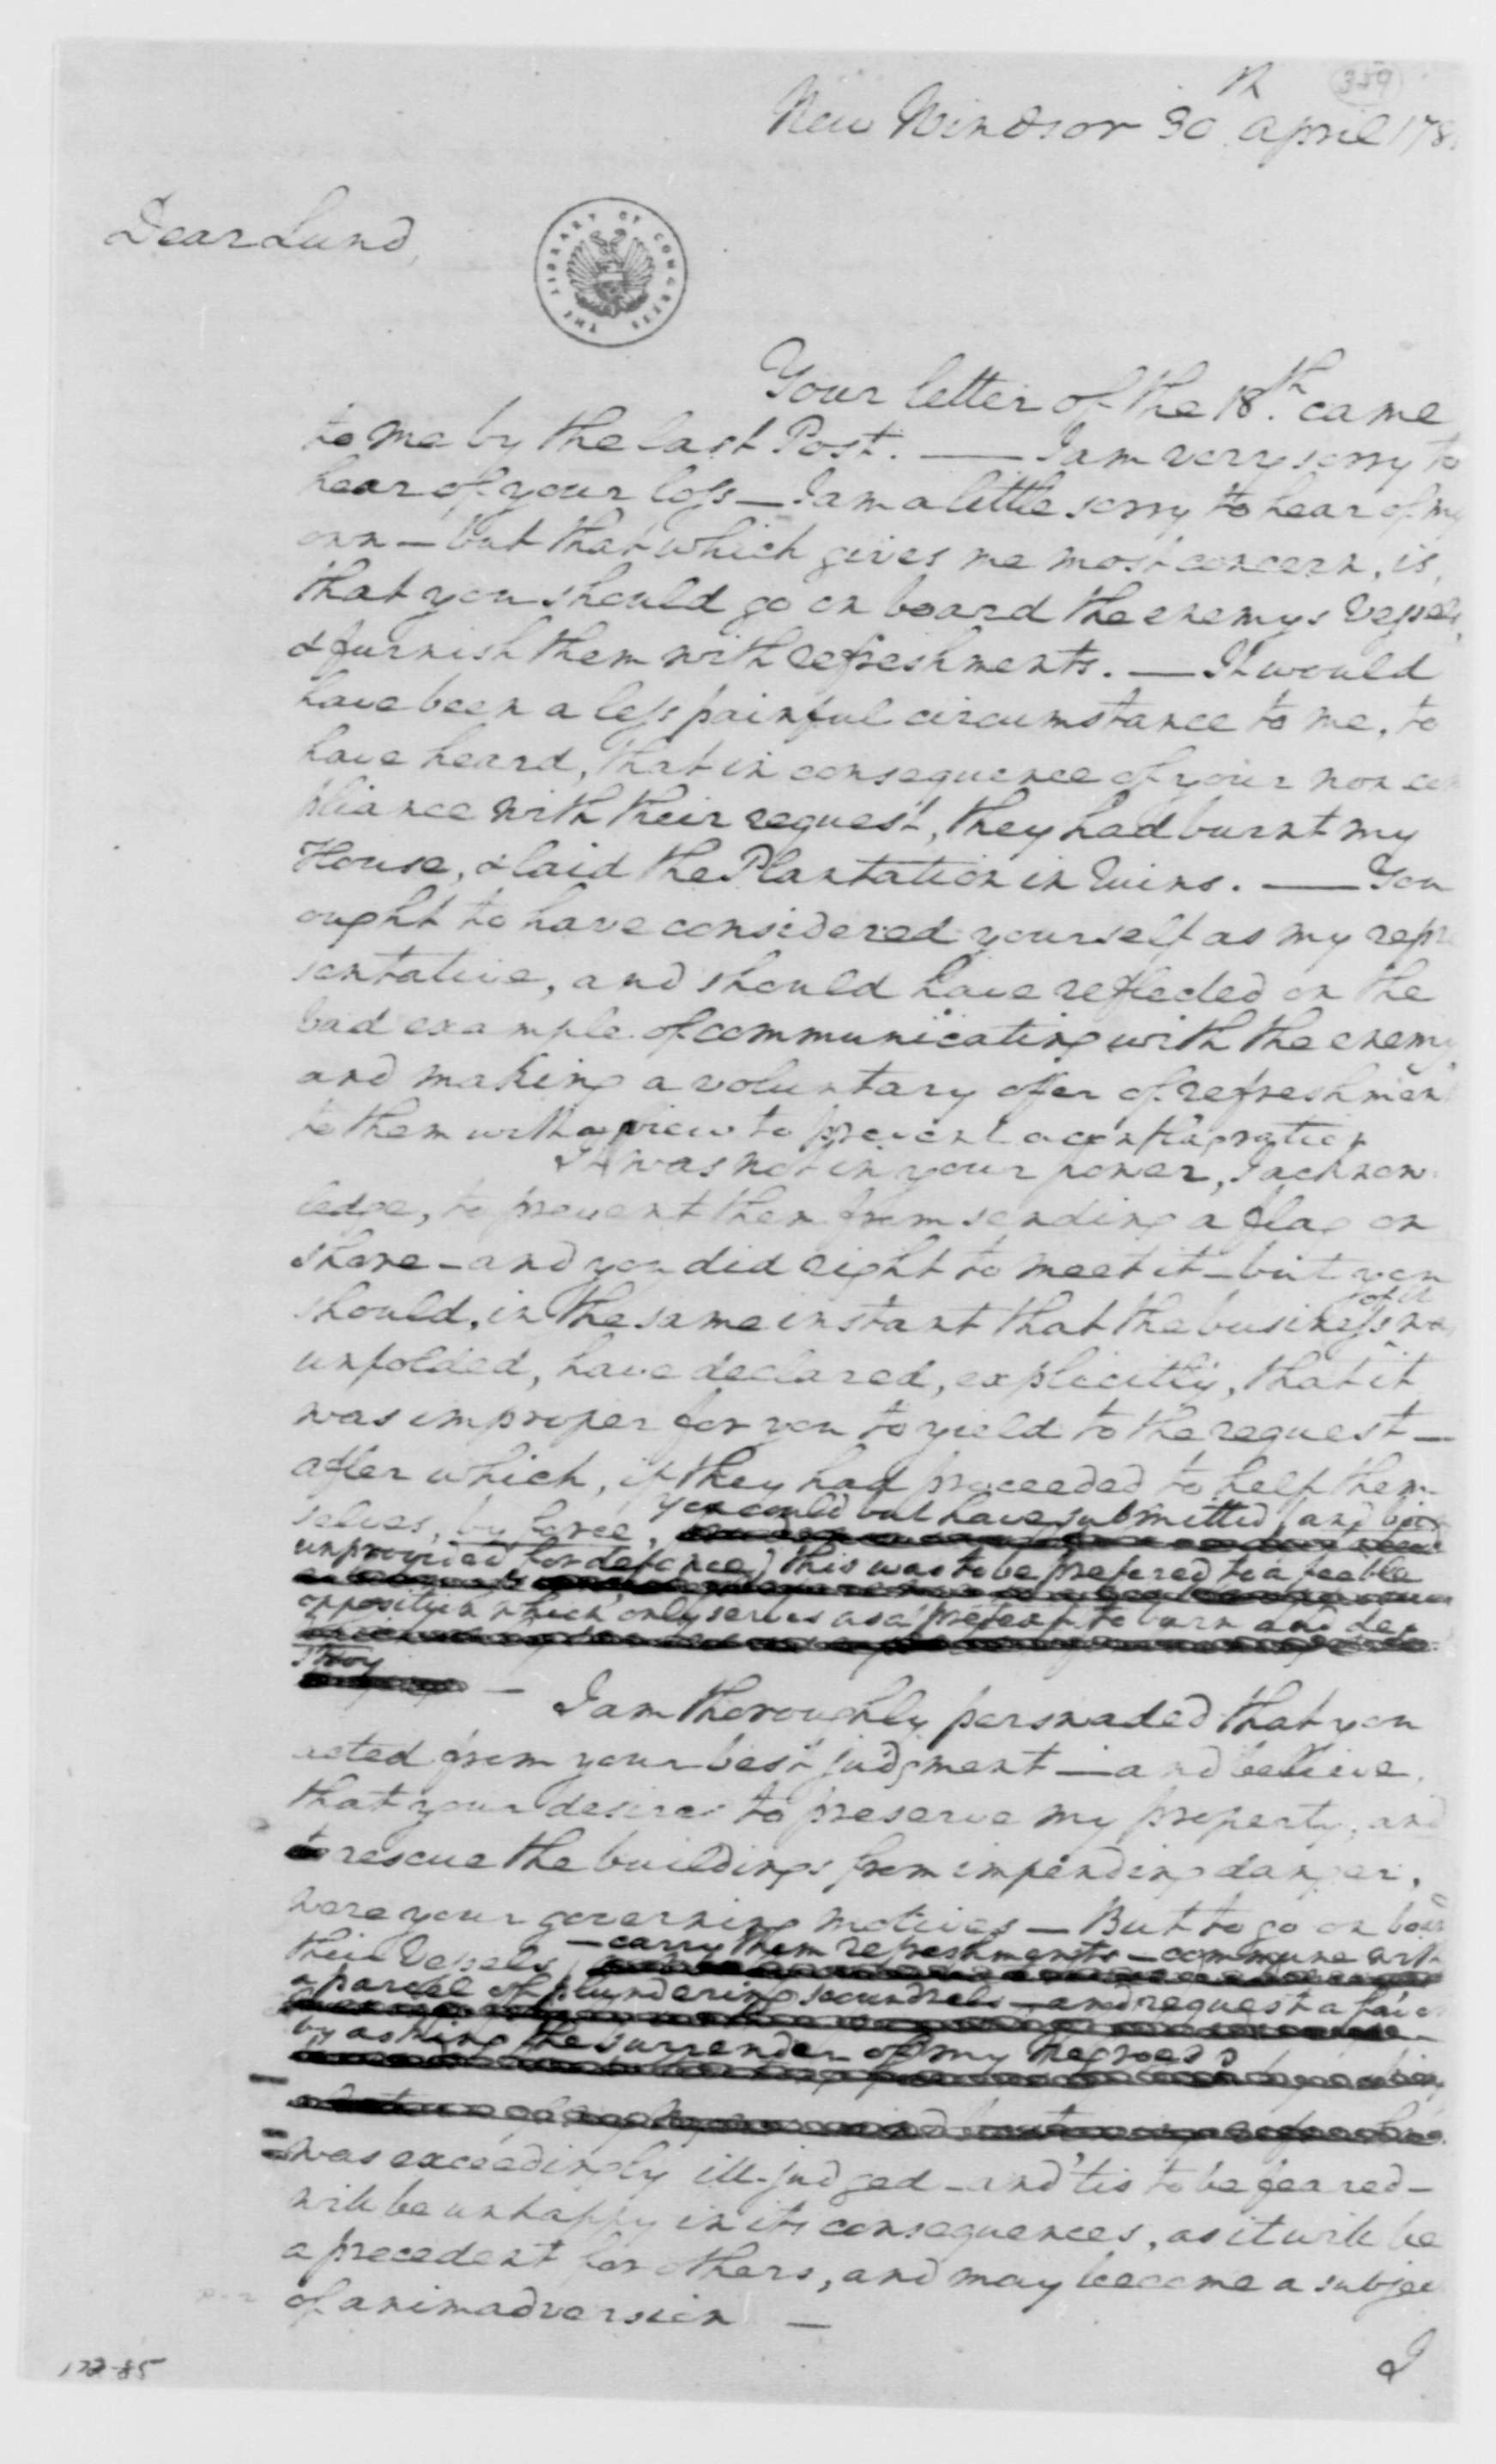 359
New Windsor 30th April 178
Dear Lund,
THE LIBRARY OF CONGRESS
Your letter of the 18th came
to me by the last Post. — I am very sorry to
hear of your loss — I am a little sorry to hear of my
own — but that which gives me most concern, is,
that you should go on board the enemys Vessels,
& furnish them with refreshments. — It would
have been a less painful circumstance to me, to
have heard, that in consequence of your non co
pliance with their request, they had burnt my
House, & laid the Plantation in Ruins. — You
ought to have considered yourself as my repre
sentative, and should have reflected on the
bad example of communicating with the enemy
and making a voluntary offer of refreshment
to them with a view to prevent a conflagration
It was not in your power, I acknow
ledge, to prevent them from sending a flag on
shore — and you did right to meet it — but you
of it
should, in the same instant that the business wa
unfolded, have declared, explicitly, that it
was improper for you to yield to the request —
after which, if they had proceeded to help them
selves, by force, you could but have submitted (and being
unprovided for defence) this was to be prefered to a feeble
opposition which only serves as a pretext to burn and des
troy —
I am thoroughly perswaded that you
acted from your best judgment — and believe,
that your desire to preserve my property, and
rescue the buildings from impending danger,
were your governing motives — But to go on board
their Vessels — carry them refreshments — commune with
a parcel of plundering scoundrels — and request a favor
by asking the surrender of my Negroes,
was exceedingly ill-judged — and 'tis to be feared —
will be unhappy in its consequences, as it will be
a precedent for others, and may become a subject
of animadversion —
I
172-85